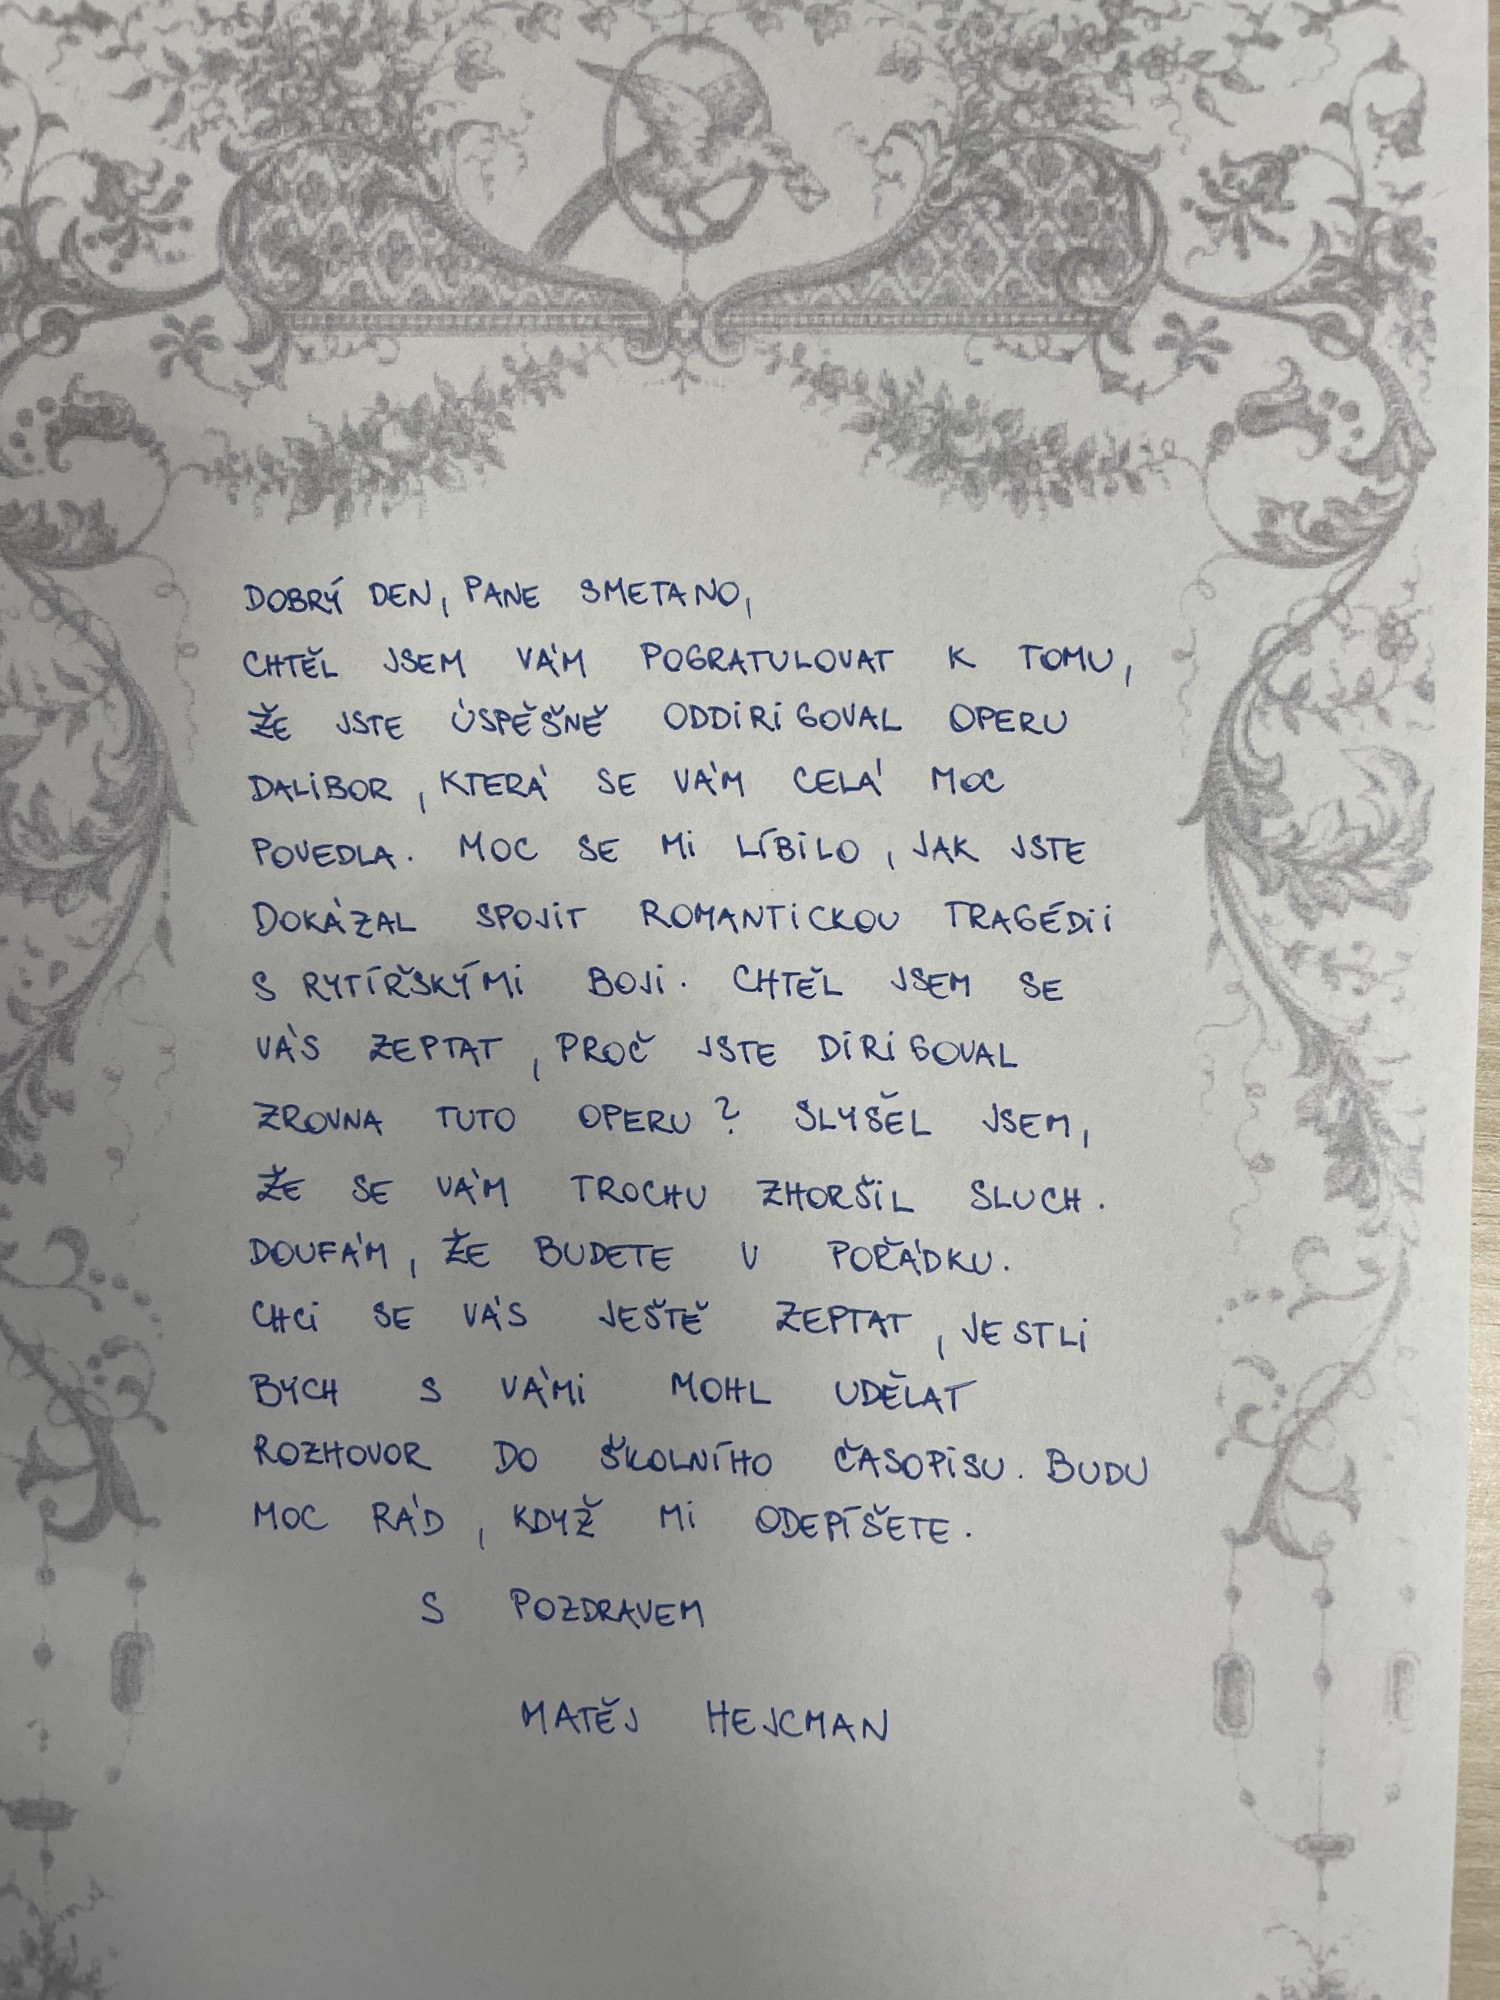 DOBRÝ DEN, PANE SMETANO,
CHTĚL JSEM VÁM POGRATULOVAT K TOMU,
ŽE JSTE ÚSPĚŠNĚ ODDIRIGOVAL OPERU
DALIBOR, KTERÁ SE VÁM CELÁ MOC
POVEDLA. MOC SE MI LÍBILO, JAK JSTE
DOKÁZAL SPOJIT ROMANTICKOU TRAGÉDII
S RYTÍŘSKÝMI BOJI. CHTĚL JSEM SE
VÁS ZEPTAT, PROČ JSTE DIRIGOVAL
ZROVNA TUTO OPERU? SLYŠĚL JSEM,
ŽE SE VÁM TROCHU ZHORŠIL SLUCH.
DOUFÁM, ŽE BUDETE V POŘÁDKU.
CHCI SE VÁS JEŠTĚ ZEPTAT, JESTLI
BYCH S VÁMI MOHL UDĚLAT
ROZHOVOR DO ŠKOLNÍHO ČASOPISU. BUDU
MOC RÁD, KDYŽ MI ODEPÍŠETE.
S POZDRAVEM
MATĚJ HEJCMAN